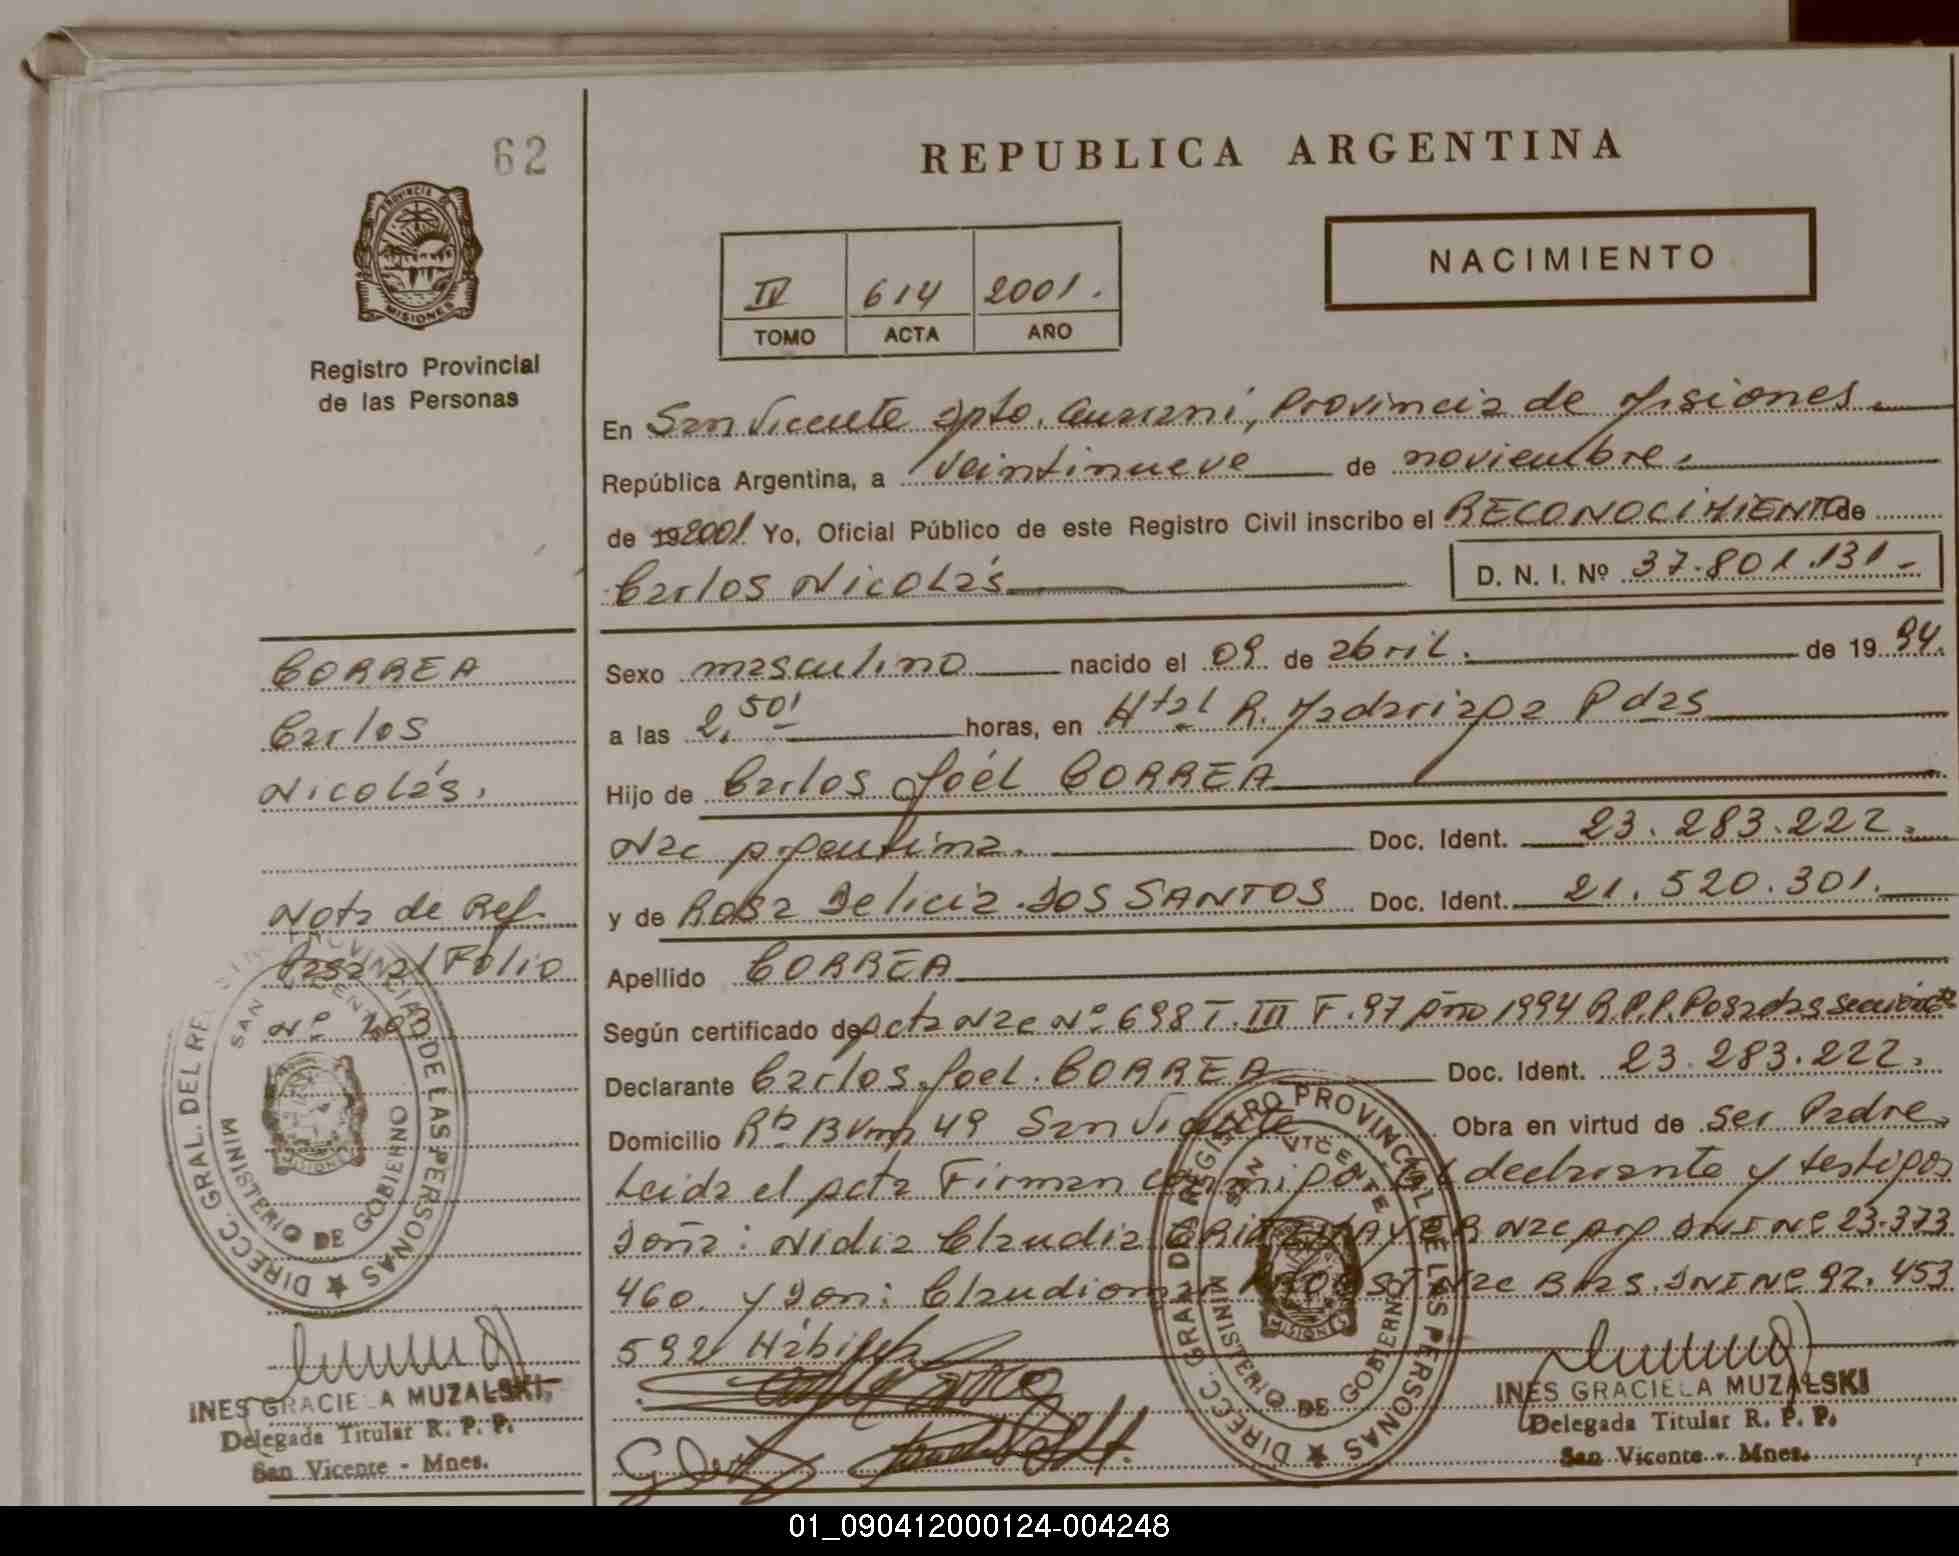 62
REPUBLICA ARGENTINA
PROVINCIA DE
MISIONES
Registro Provincial
de las Personas
NACIMIENTO
IV 614 2001.
TOMO ACTA AÑO
En San Vicente Dpto. Guaraní, Provincia de Misiones.
República Argentina, a veintinueve de noviembre.
de 19 2001. Yo, Oficial Público de este Registro Civil inscribo el RECONOCIMIENTO de
Carlos Nicolás D. N. I. Nº 37.801.131-
CORREA
Carlos
Nicolás.
Nota de Ref.
Pasa al Folio
Nº
Sexo masculino nacido el 09 de abril. de 19 94.
a las 2,50' horas, en Htal R. Madariaga Pdas
Hijo de Carlos Joél CORREA
Nac Argentina. Doc. Ident. 23.283.222.
y de Rosa Delicia DOS SANTOS Doc. Ident. 21.520.301.
Apellido CORREA
Según certificado de Acta Nac Nº 698 T. III F. 97 Año 1994 R.P.P. Posadas
Declarante Carlos Joel CORREA Doc. Ident. 23.283.222.
Domicilio Rta 13 Km 49 San Vicente Obra en virtud de ser Padre
Leida el acta Firman conmigo el declarante y testigos
Doña: Nidia Claudia Nac Arg DNI Nº 23.373
460. y Don: Claudiomar Nac Bras. DNI Nº 92.453
592 Hábiles
DIRECC. GRAL. DEL REGISTRO PROVINCIAL DE LAS PERSONAS
SAN VICENTE
MINISTERIO DE GOBIERNO
MISIONES
INES GRACIELA MUZALSKI
Delegada Titular R. P. P.
San Vicente - Mnes.
DIRECC. GRAL. DEL REGISTRO PROVINCIAL DE LAS PERSONAS
SAN VICENTE
MINISTERIO DE GOBIERNO
MISIONES
INES GRACIELA MUZALSKI
Delegada Titular R. P. P.
San Vicente - Mnes.
01_090412000124-004248